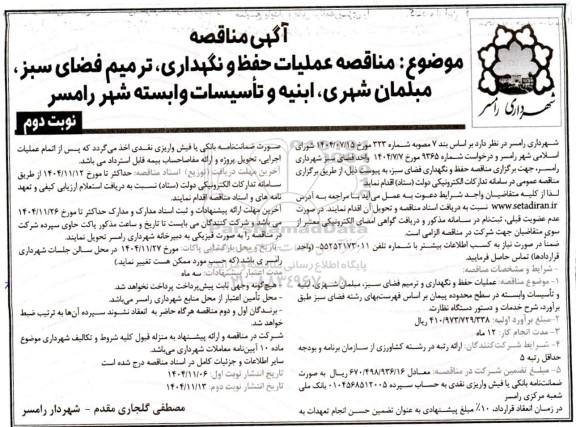 آگهی مناقصه
موضوع: مناقصه عملیات حفظ و نگهداری، ترمیم فضای سبز،
مبلمان شهری، ابنیه و تأسیسات وابسته شهر رامسر
شهرداری رامسر
نوبت دوم
شهرداری رامسر در نظر دارد بر اساس بند ۷ مصوبه شماره ۲۲۳ مورخ ۱۴۰۴/۰۷/۱۵ شورای
اسلامی شهر رامسر و درخواست شماره ۹۳۶۵ مورخ ۱۴۰۴/۷/۷ واحد فضای سبز شهرداری
رامسر، جهت برگزاری مناقصه حفظ و نگهداری فضای سبز، به پیوست ذیل، از طریق برگزاری
مناقصه عمومی در سامانه تدارکات الکترونیکی دولت (ستاد) اقدام نماید.
لذا از کلیه متقاضیان واجد شرایط دعوت به عمل می‌آید با مراجعه به آدرس
www.setadiran.ir نسبت به دریافت اسناد مناقصه و تحویل آن اقدام نمایند. در صورت
عدم عضویت قبلی، ثبت‌نام در سامانه مذکور و دریافت گواهی امضای الکترونیکی معتبر از
سوی متقاضیان جهت شرکت در مناقصه الزامی است.
ضمنا در صورت نیاز به کسب اطلاعات بیشتر با شماره تلفن ۰۱۱-۵۵۲۵۲۱۷۳ (واحد
قراردادها) تماس حاصل فرمایید.
- شرایط و مشخصات مناقصه:
۱- موضوع مناقصه: عملیات حفظ و نگهداری و ترمیم فضای سبز، مبلمان شهری، ابنیه
و تأسیسات وابسته در سطح محدوده پیمان بر اساس فهرست‌بهای رشته فضای سبز طبق
برآورد، شرح خدمات و دستور دستگاه نظارت.
۲- مبلغ برآورد اولیه: ۴۱۰/۹۷۳/۷۲۹/۳۳۸ ریال
۳- مدت انجام کار: ۱۲ ماه
۴- شرایط شرکت‌کنندگان: ارائه رتبه در رشته کشاورزی از سازمان برنامه و بودجه
حداقل رتبه ۵
۵- مبلغ تضمین شرکت در مناقصه: معادل ۶۷۰/۴۹۸/۹۳۶/۱۶ ریال به صورت
ضمانت‌نامه بانکی یا فیش واریزی نقدی به حساب سپرده ۰۱۰۴۵۶۸۵۱۲۰۰۵ بانک ملی
شعبه مرکزی رامسر
در زمان انعقاد قرارداد، ۱۰٪ مبلغ پیشنهادی به عنوان تضمین حسن انجام تعهدات به
صورت ضمانت‌نامه بانکی یا فیش واریزی نقدی اخذ می‌گردد که پس از اتمام عملیات
اجرایی، تحویل پروژه و ارائه مفاصاحساب بیمه قابل استرداد می باشد.
آخرین مهلت دریافت (توزیع) اسناد مناقصه: حداکثر تا مورخ ۱۴۰۴/۱۱/۱۲ از طریق
سامانه تدارکات الکترونیکی دولت (ستاد) نسبت به دریافت استعلام ارزیابی کیفی و تعهد
نامه های و اسناد مناقصه اقدام نمایند.
آخرین مهلت ارائه پیشنهادات و ثبت اسناد مدارک و مدارک حداکثر تا مورخ ۱۴۰۴/۱۱/۲۶
می باشد و شرکت کنندگان می بایست تا تاریخ و ساعت مذکور پاکت حاوی سپرده شرکت
در مناقصه را به صورت فیزیکی به دبیرخانه شهرداری رامسر تحویل نمایند.
- تاریخ و محل بازگشایی پاکات: مورخ ۱۴۰۴/۱۱/۲۷ در محل سالن جلسات شهرداری
رامسر می باشد (که حسب مورد ممکن هست تغییر نماید.)
مدت اعتبار پیشنهادات: سه ماه
- هیچ‌گونه وجهی بابت پیش‌پرداخت پرداخت نخواهد شد.
- محل تأمین اعتبار از محل منابع شهرداری رامسر می‌باشد.
- برندگان اول و دوم مناقصه هرگاه حاضر به انعقاد نشوند سپرده آن‌ها به ترتیب ضبط
خواهد شد.
شرکت در مناقصه و ارائه پیشنهاد به منزله قبول کلیه شروط و تکالیف شهرداری موضوع
ماده ۱۰ آیین‌نامه معاملات شهرداری می‌باشد.
سایر اطلاعات و جزئیات کامل در اسناد مناقصه درج شده است
تاریخ انتشار نوبت اول: ۱۴۰۴/۱۱/۰۶
تاریخ انتشار نوبت دوم: ۱۴۰۴/۱۱/۱۳
مصطفی گلجاری مقدم - شهردار رامسر